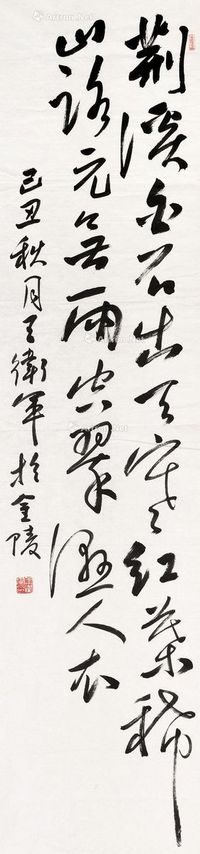 荆溪白石出天寒红葉稀
山路元无雨空翠湿人衣
己丑秋月王衛军於金陵